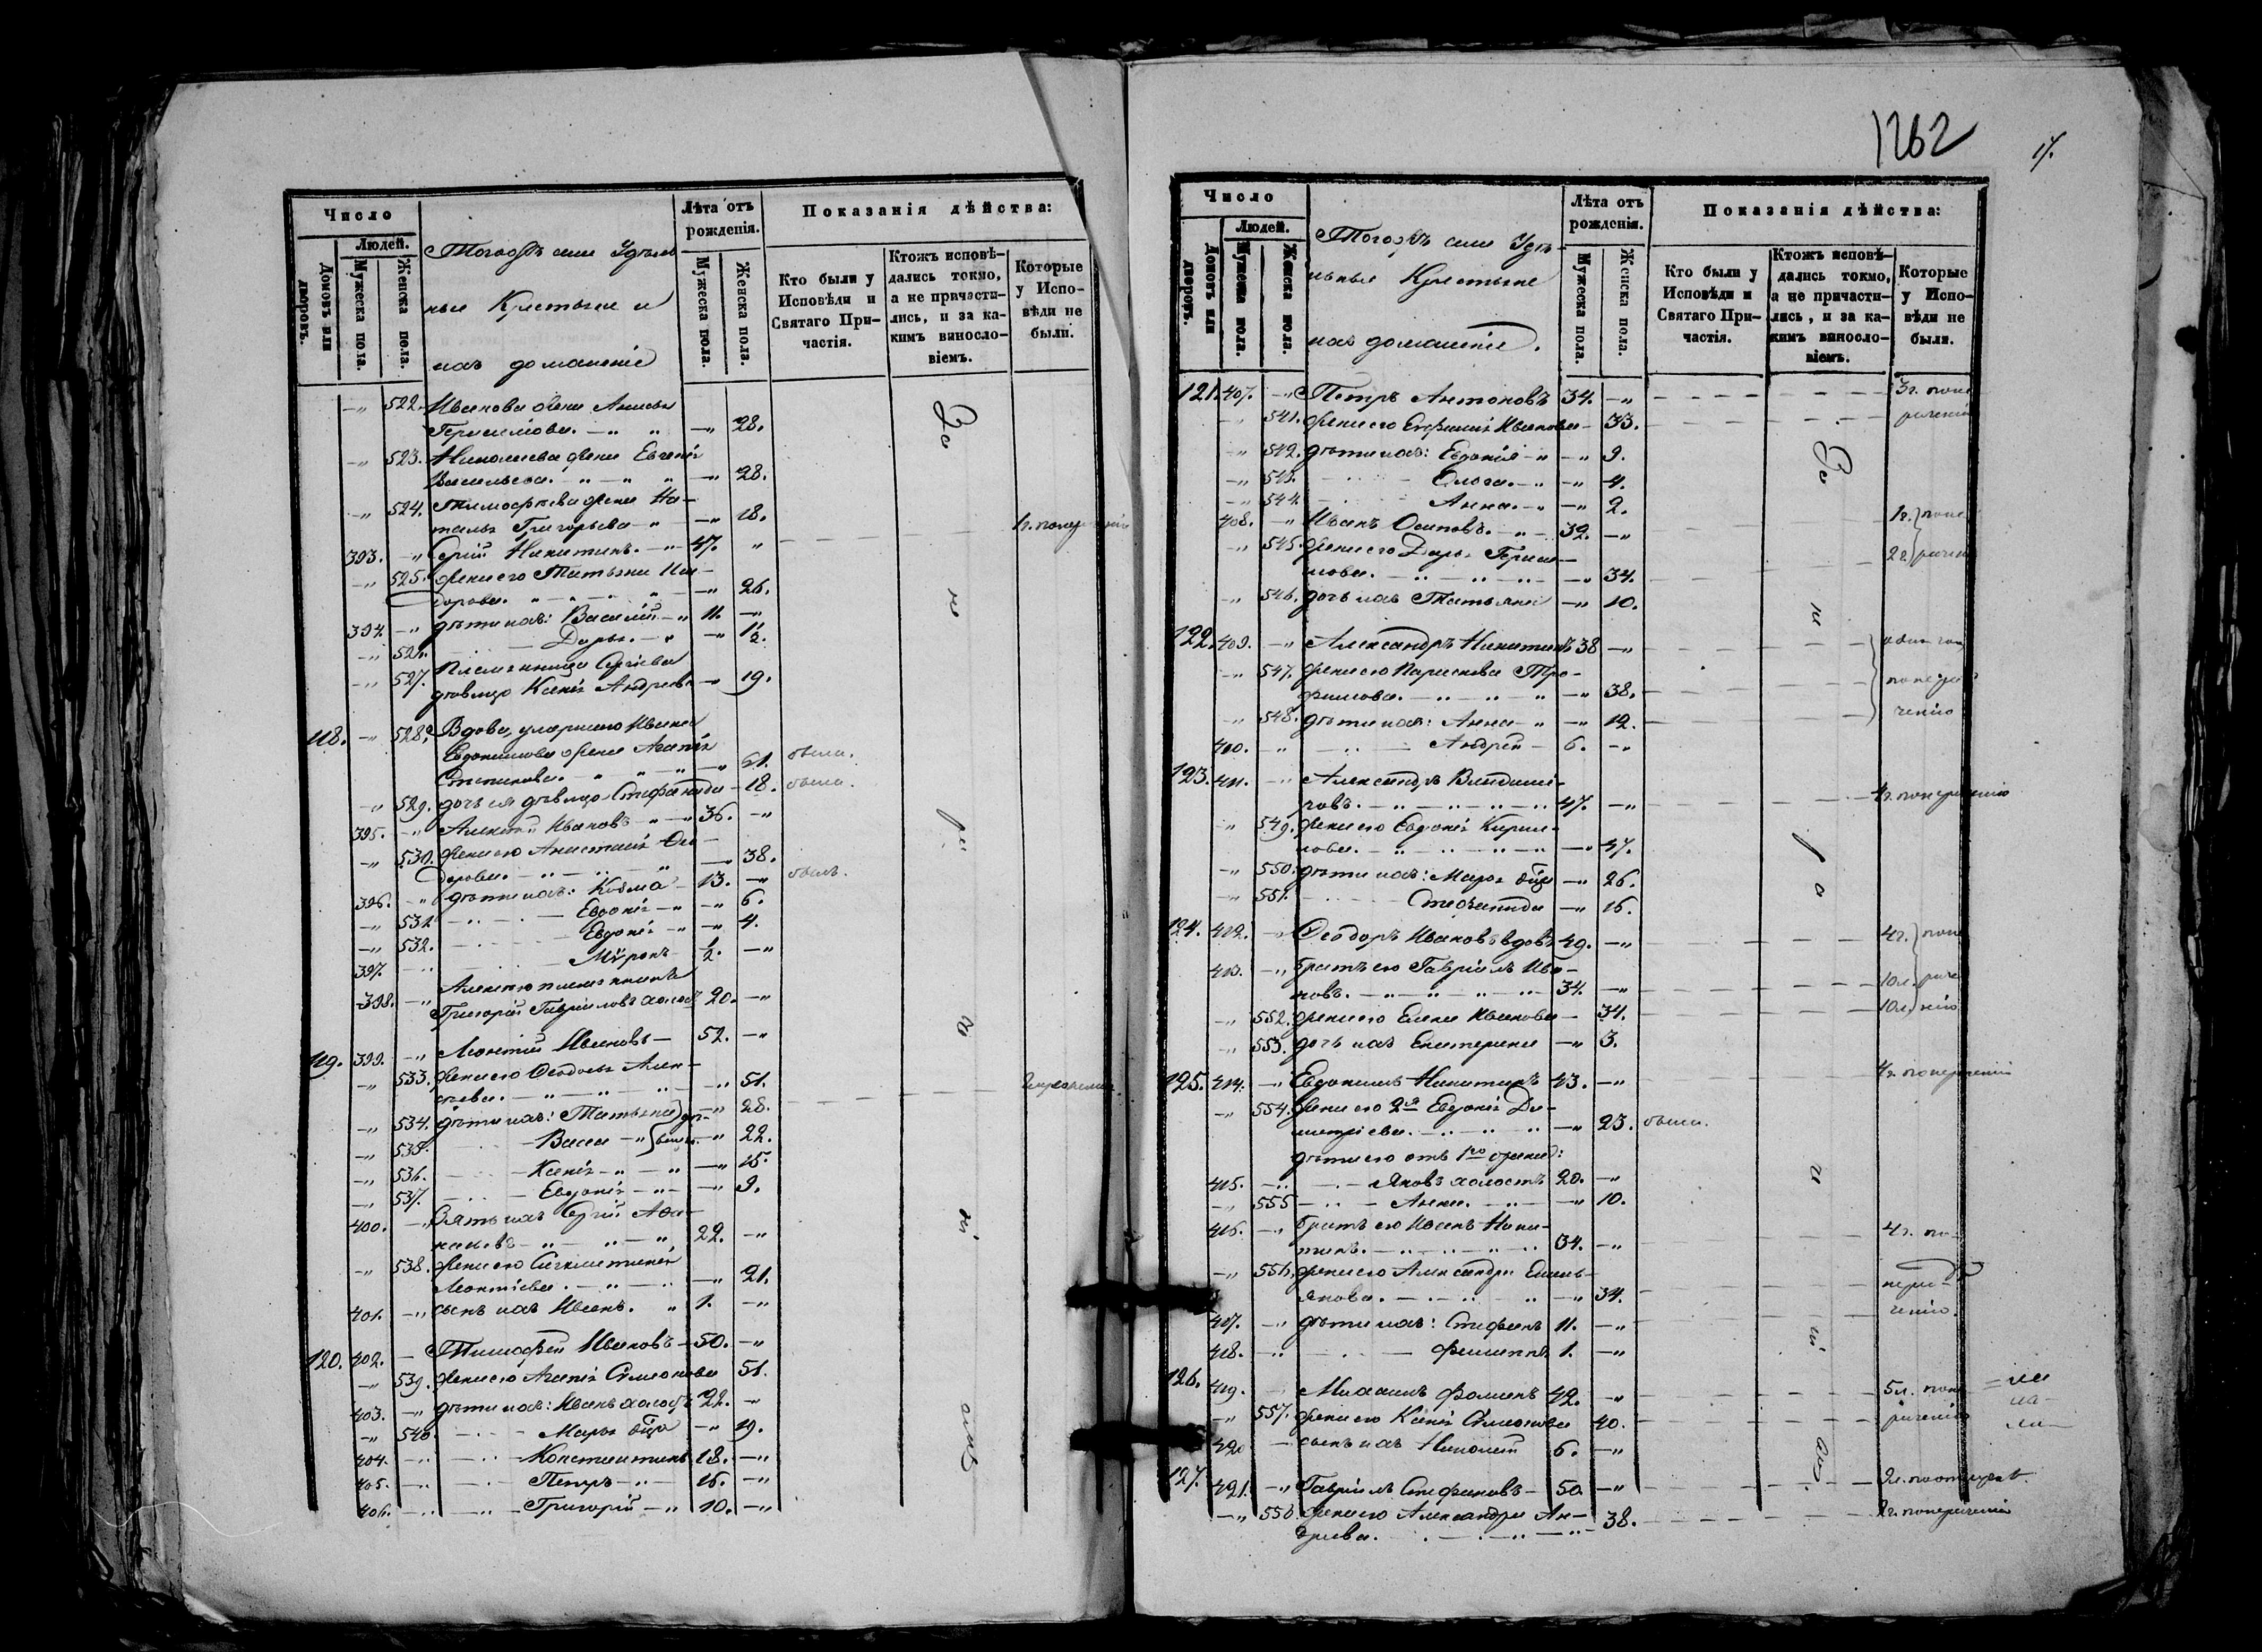 Число
Людей.
Домовъ или дворовъ.
Мужеска пола.
Женска пола.
Тогожъ села Удѣль-
ные Крестьяне и
ихъ домашніе
Лѣта отъ рожденія.
Мужеска пола.
Женска пола.
Показанія дѣйства:
Кто были у Исповѣди и Святаго Причастія.
Ктожъ исповѣдались токмо, а не причастились, и за какимъ винословіемъ.
Которые у Исповѣди не были.
—„ 522. Иванова жена Анисья
Герасимова. —„ „ —„ 28.
—„ 523. Николаева жена Евгенія
Васильева. —„ —„ „ —„ 28.
—„ 524. Тимоѳеева жена На-
талья Григорьева —„ —„ 18.
393. —„ Сергій Никитинъ. —„ 47. „ 1г. понерадѣнію
—„ 525. жена его Татьяна
—„ 26.
394. —„ дѣти ихъ: Василій —„ 11. —„
—„ 526. Дарья. —„ —„ 1½.
—„ 527. Племянница Сергіева
дѣвица Ксенія Андреева —„ 19.
118. —„ 528. Вдова, умершаго Ивана
Евдокимова жена Агапія
Степанова. „ „ —„ —„ 61. была.
—„ 529. дочь ея дѣвица Стефанида —18. была.
395. —„ Алексѣй Ивановъ —„ 36. —„
—„ 530. жена его Анастасія Ѳео-
дорова. —„ 38.
396. —„ дѣти ихъ: Козма — 13. —„ былъ.
—„ 531. Евдокія —„ —„ 6.
—„ 532. Евдокія —„ —„ 4.
397. Мѵронъ ½. —„
Алексѣю племянникъ
398. —„ Григорій Гавріиловъ холостъ 20. —„
119. 399. —„ Леонтій Ивановъ — 52. —„
—„ 533. жена его Ѳеодосья Алек-
сѣева. —„ —„ 51.
—„ 534. дѣти ихъ: Татьяна дѣ- —„ 28.
—„ 535. Васса —„ вицы —„ 22.
—„ 536. Ксенія —„ —„ —„ 15.
—„ 537. Евдокія —„ —„ 9.
400. —„ Зять ихъ Сергій Аѳа-
насьевъ —„ —„ 22. —„
—„ 538. жена его
Леонтіева. —„ —„ 21.
401. —„ сынъ ихъ Иванъ. „ 1. —„
120. 402. — Тимоѳей Ивановъ — 50. —„
—„ 539. жена его Агапія Сѵмеонова 51.
403. —„ дѣти ихъ: Иванъ холостъ 22. —„
—„ 540. Марья дѣвица —„ 19.
404. —„ Константинъ 18. —„
405. —„ Петръ —„ 16. —„
406. —„ Григорій —„ 10. —„
За не ра де ні емъ
1262
17.
Число
Людей.
Домовъ или дворовъ.
Мужеска пола.
Женска пола.
Тогожъ села Удѣ-
льные Крестьяне
ихъ домашніе.
Лѣта отъ рожденія.
Мужеска пола.
Женска пола.
Показанія дѣйства:
Кто были у Исповѣди и Святаго Причастія.
Ктожъ исповѣдались токмо, а не причастились, и за какимъ винословіемъ.
Которые у Исповѣди не были.
121. 407. —„ Петръ Антоновъ 34. —„ 3г. поне
—„ 541. жена его Евфимія Иванова — 33. раденію
—„ 542. дѣти ихъ: Евдокія —„ —„ 9.
—„ 543. Ольга. —„ —„ 4.
—„ 544. Анна. —„ —„ 2.
408. —„ Иванъ Осиповъ. —„ — 32. —„ 1г. поне
—„ 545. жена его Дарья Гераси-
мова. —„ 34. 2г. раден
—„ 546. дочь ихъ Татьяна —„ 10.
122. 409. —„ Александръ Никитинъ 38 —„
—„ 547. жена его Параскева Тро-
фимова. —„ 38. понера
—„ 548. дѣти ихъ: Анна —„ —„ 12. денію
410. —„ Андрей — 6. —„
123. 411. —„ Александръ Владимі-
ровъ. —„ 47. —„ 4г. понераденію
—„ 549. жена его Евдокія Кирил-
лова. —„ 47.
—„ 550. дѣти ихъ: Марья дѣвица —„ 26.
—„ 551. Стефанида —„ 16.
124. 412. —„ Ѳеодоръ Ивановъ вдовъ 49. —„ 4г. поне
413. —„ братъ его Гавріилъ Ива-
новъ. —„ 34. —„ 10л. раде
—„ 552. жена его Елена Иванова — 34. 10л. нію
—„ 553. дочь ихъ Екатерина —„ 3.
125. 414. —„ Евдокимъ Никитинъ 43. —„ 4г. понераденію
—„ 554. жена его 2я Евдокія Ди-
митріева. —„ 23. была.
дѣти его отъ 1го жены:
415. —„ Яковъ холостъ 20. —„
—„ 555 Анна. —„ —„ 10.
416. —„ братъ его Иванъ Ники-
тинъ. —„ 34. —„ 4г. по-
—„ 556. жена его Александра Емель-
янова. —„ 34. нерад
417. —„ дѣти ихъ: Стефанъ 11. —„ енію.
418. —„ Филиппъ 1. —„
126. 419. — Михаилъ Фоминъ 42. —„ 5л. поне
—„ 557. жена его Ксенія Сѵмеонова 40. раденію
420 — сынъ ихъ Николай 6. —„
127. 421. —„ Гавріилъ Стефановъ — 50. —„
—„ 558. жена его Александра Ан-
дреева. —„ 38. 2г. понераденію
За не ра де ні емъ